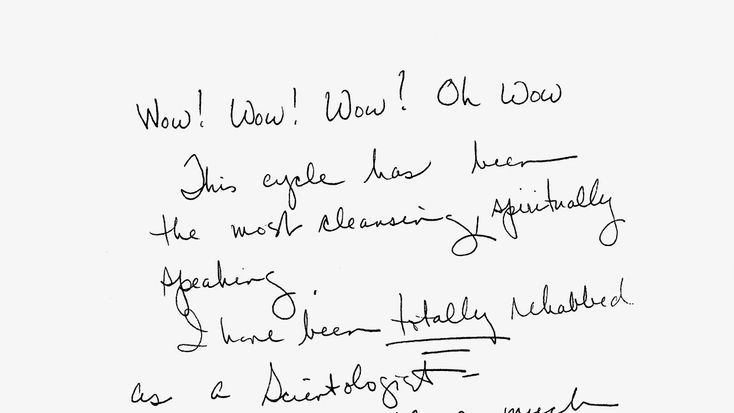 Wow! Wow! Wow? Oh Wow
This cycle has been
the most cleansing, spiritually
speaking.
I have been totally rehabbed
as a Scientologist -
much